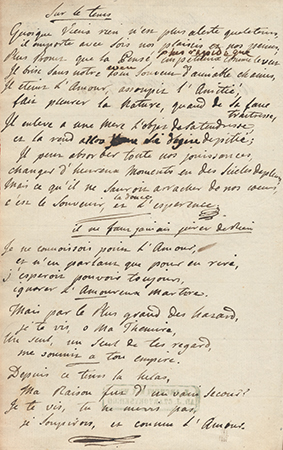 Sur le tems
Quoique Vieux rien n'est plus alerte que le tems,
il emporte avec soi nos plaisirs et nos peines,
Plus prompt que la Pensé, plus rapide que
le vent
Il brise sans notre aveu souvent d'aimable chaines,
Il éteint l'Amour, assoupit l'Amitié;
fait pleurer la Nature, quand de sa faux
traitresse,
Il enleve a une Mere l'objet de sa tendresse
et la rend digne de pitié;
Il peut absorber toute nos jouissances,
changer d'heureux Moments en des Siècles de pleurs
Mais ce qu'il ne sauroit arracher de nos cœurs
c'est le Souvenir, et la douce
l'esperance.
il ne faut jamais jurer de Rien
Je ne connoissois point l'Amour,
et n'en parlant que pour en rire,
j'esperois pouvoir toujours,
ignorer l'Amoureux martire.
Mais par le Plus grand des hazard,
je te vis, o Ma Themire
Un seul, un seul de tes regard,
me soumit a ton empire.
Depuis ce tems la helas,
Ma Raison fut d'un vain secour
Je te vis, tu ne m'evis pas,
je soupirois, et connu l'Amour.